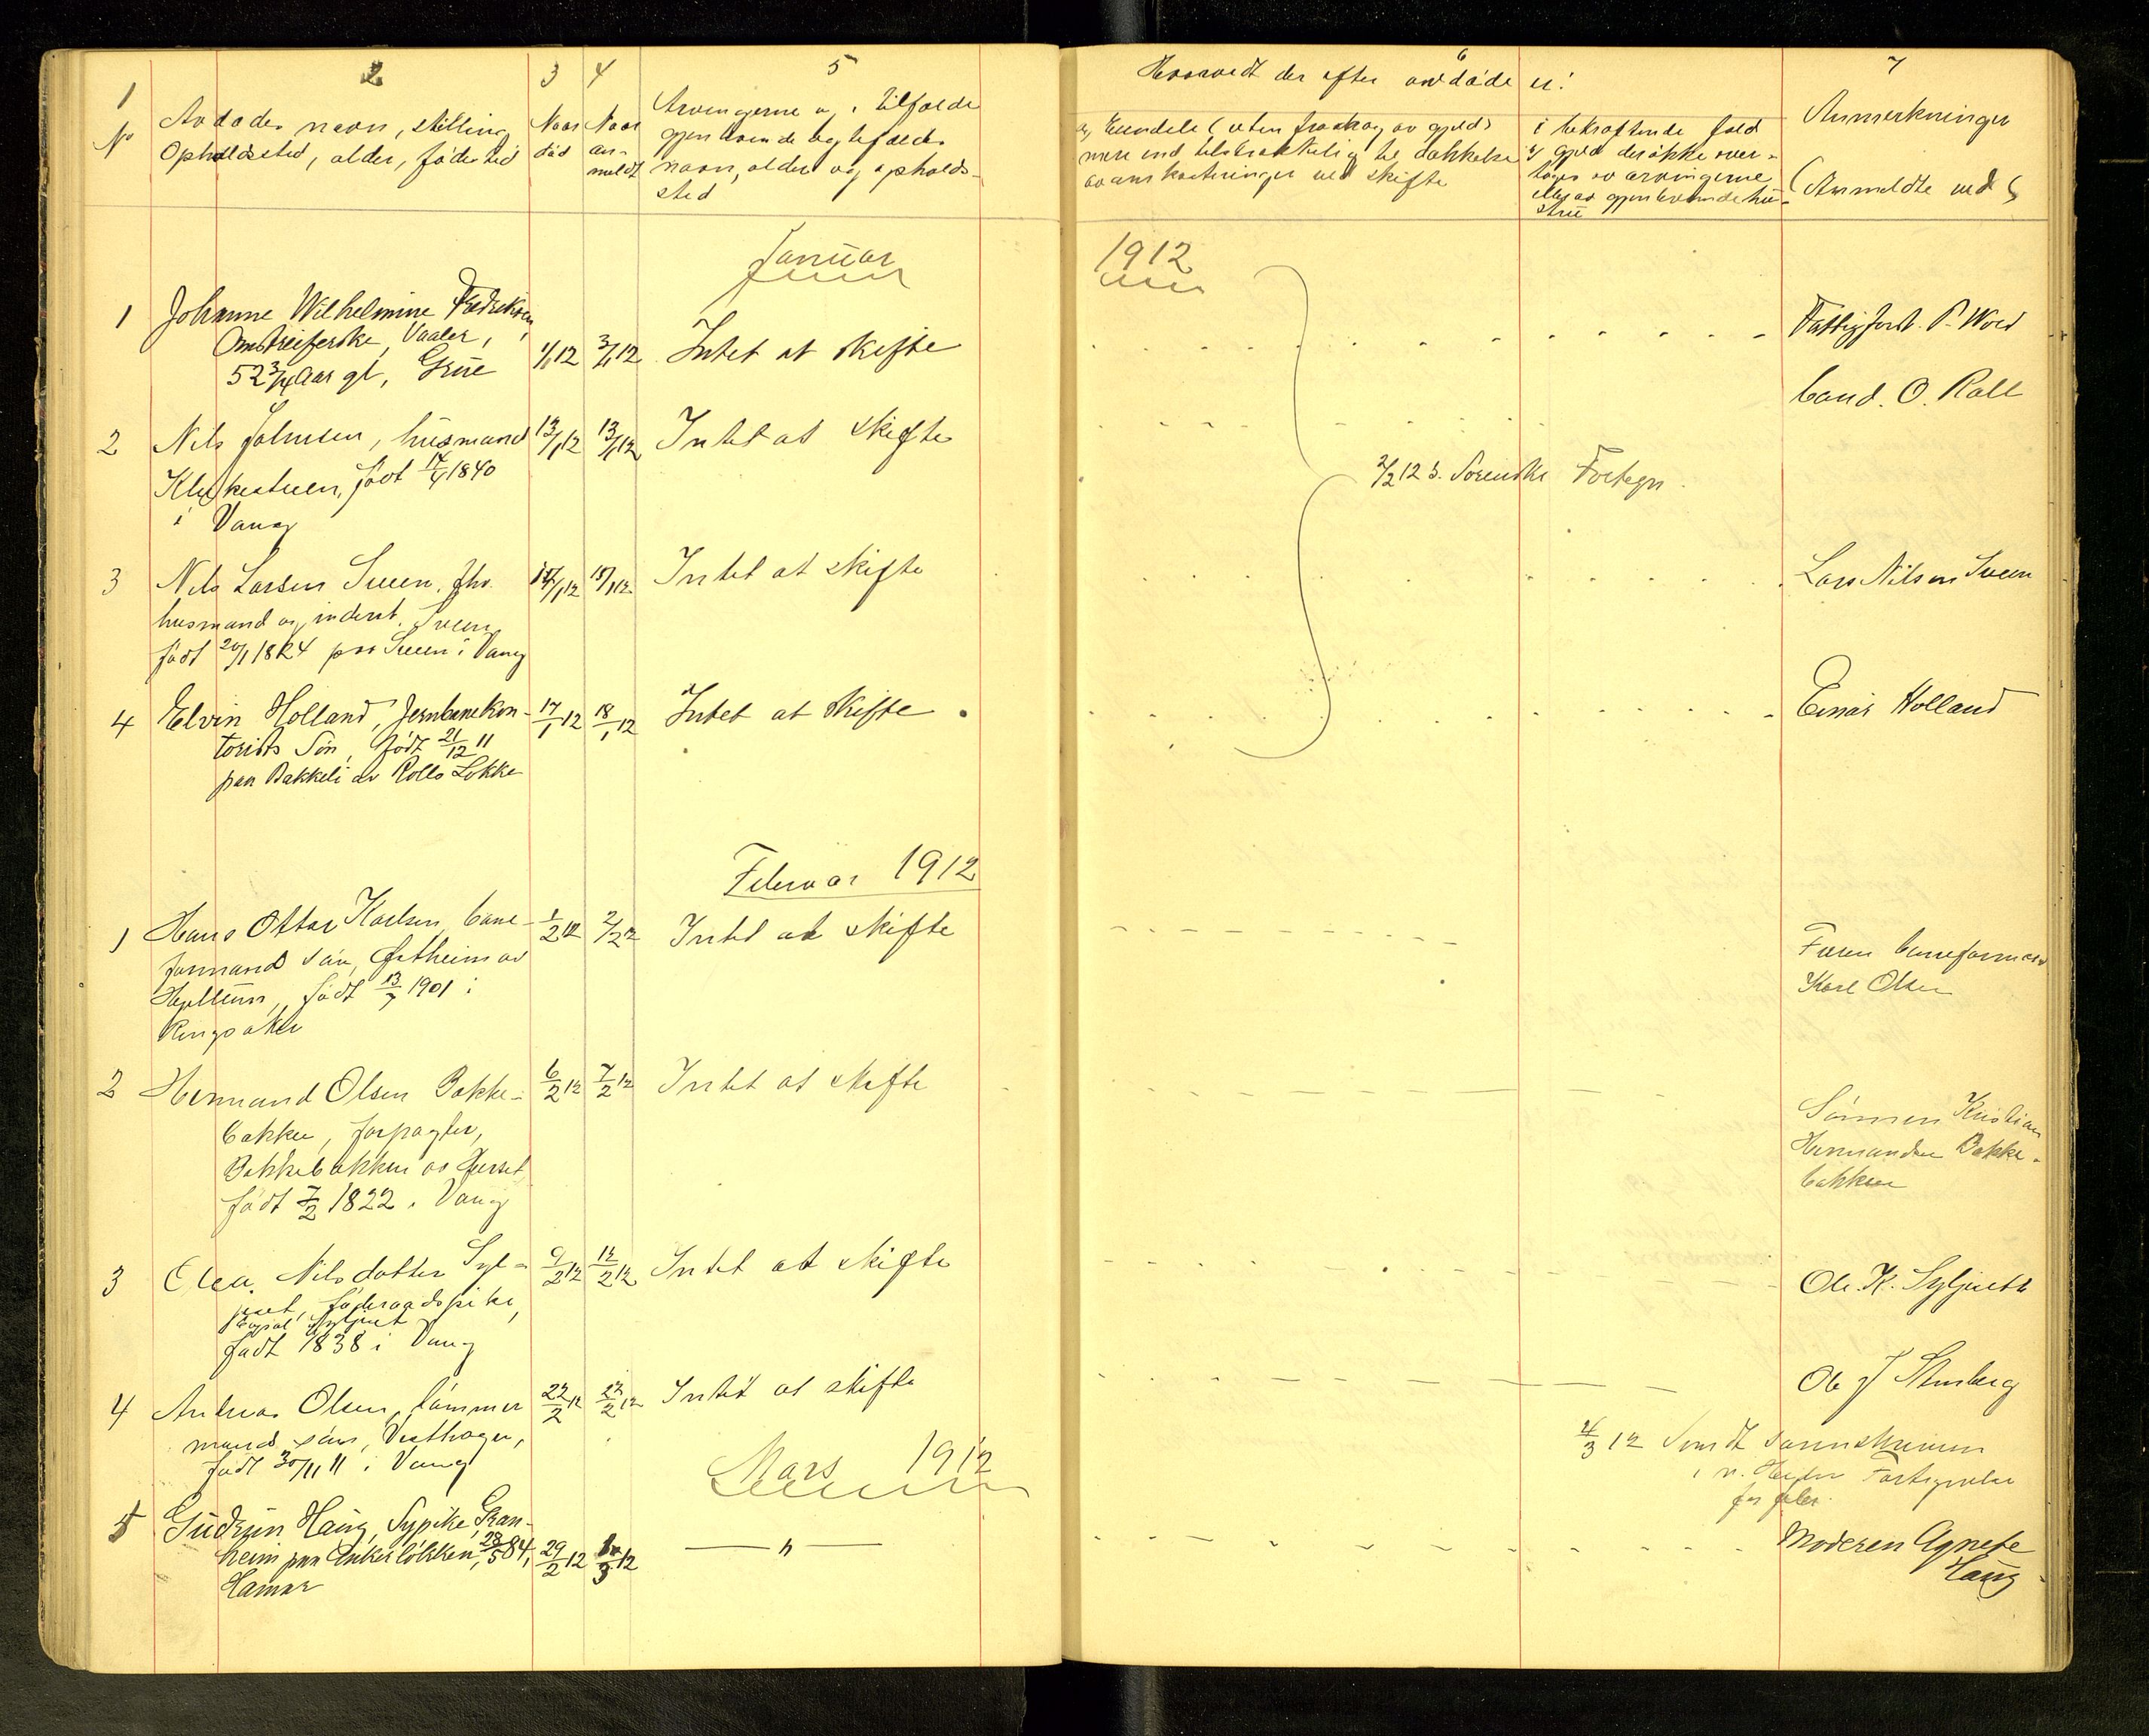 1 2 3 4 5
No Avdødes navn, stilling
Opholdssted, alder, fødested
Naar død
Naar an-
meldt
Arvingerne og i tilfælde
gjenlevende egtefælles
navn, alder og opholds-
sted
6 7
Hvorvidt der efter avdøde er:
a, Eiendele (uten fradrag av gjeld)
mere end tilstrækkelig til dækkelse
av omkostninger ved skifte
i bekræftende fald
gjeld der ikke over-
tages av arvingerne
eller av gjenlevende hu-
stru
Anmerkninger
(Anmeldte ved)
Januar 1912
1 Johanne Wilhelmine Fredriksen
Omstreiferske, Vaaler,
52 3/4 Aar gl, Grue
1/1 12 3/1 12 Intet at skifte
Fattigforst. P. Wold
2 Nils Johnsen, husmand
født 14/4 1840
i Vang
13/1 12 13/1 12 Intet at skifte
Cand. O. Roll
2/2 12 s. Sorenskr Fortegn.
3 Nils Larsen Sveen, fhv.
husmand og inderst, Sveen
født 20/1 1824 paa Sveen i Vang
15/1 12 Intet at skifte
Lars Nilsen Sveen
4 Elvin Holland, Jernbanekon-
torists Søn, født 21/12 11
paa Bakkeli av Rolls Løkke
17/1 12 18/1 12 Intet at skifte
Einar Holland
Februar 1912
1 Hans Ottar Karlsen, bane-
formands søn, Østheim av
Hjellum, født 13/7 1901 i
Ringsaker
1/2 12 2/2 12 Intet at skifte
Faren baneformand
Karl Olsen
2 Hermand Olsen Bakke-
bakken, forpagter,
Bakkebakken av
født 7/2 1822 i Vang
6/2 12 7/2 12 Intet at skifte
Sønnen Kristian
Hermandsen Bakke-
bakken
3 Olea Nilsdatter Syl-
juet, føderaadspike,
Syljuet
født 1838 i Vang
9/2 12 12/2 12 Intet at skifte
Ole K. Syljueth
4 Andreas Olsen, tømmer
mands søn, Vesthagen,
født 30/11 11 i Vang
22/2 12 22/2 12 Intet at skifte
Ole J Stensberg
Mars 1912
4/3 12 Sendt sorenskriveren
i n. Hedm Fortegnelse
for febr.
5 Gudrun Haug, Sypike, Gran-
heim paa Ankerløkken, 28/5 84,
Hamar
29/2 12 1/3 12 — " —
Moderen Agnete
Haug